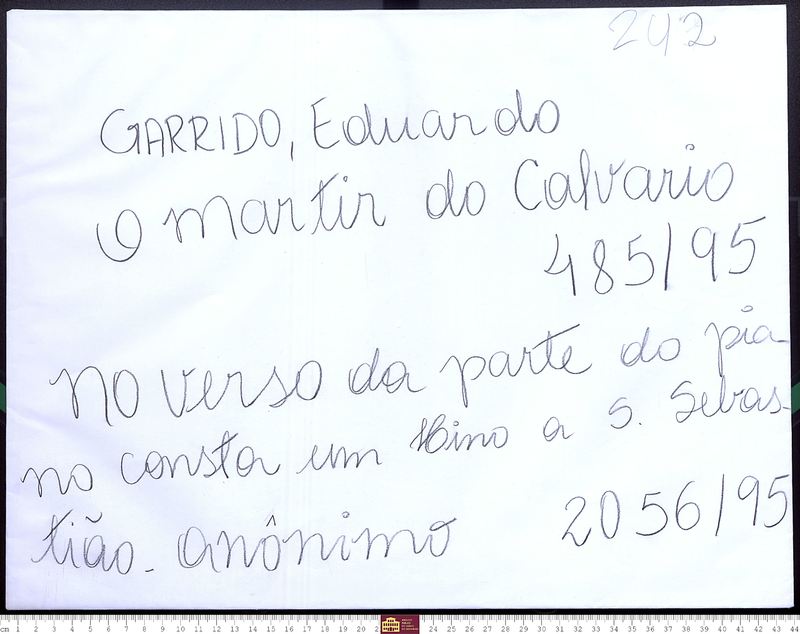 242
GARRIDO, Eduardo
O martir do Calvario
485/95
No verso da parte do pia-
no consta um Hino a S. Sebas-
tião - anônimo 2056/95
cm 1 2 3 4 5 6 7 8 9 10 11 12 13 14 15 16 17 18 19 20 2 24 25 26 27 28 29 30 31 32 33 34 35 36 37 38 39 40 41 42 43 44